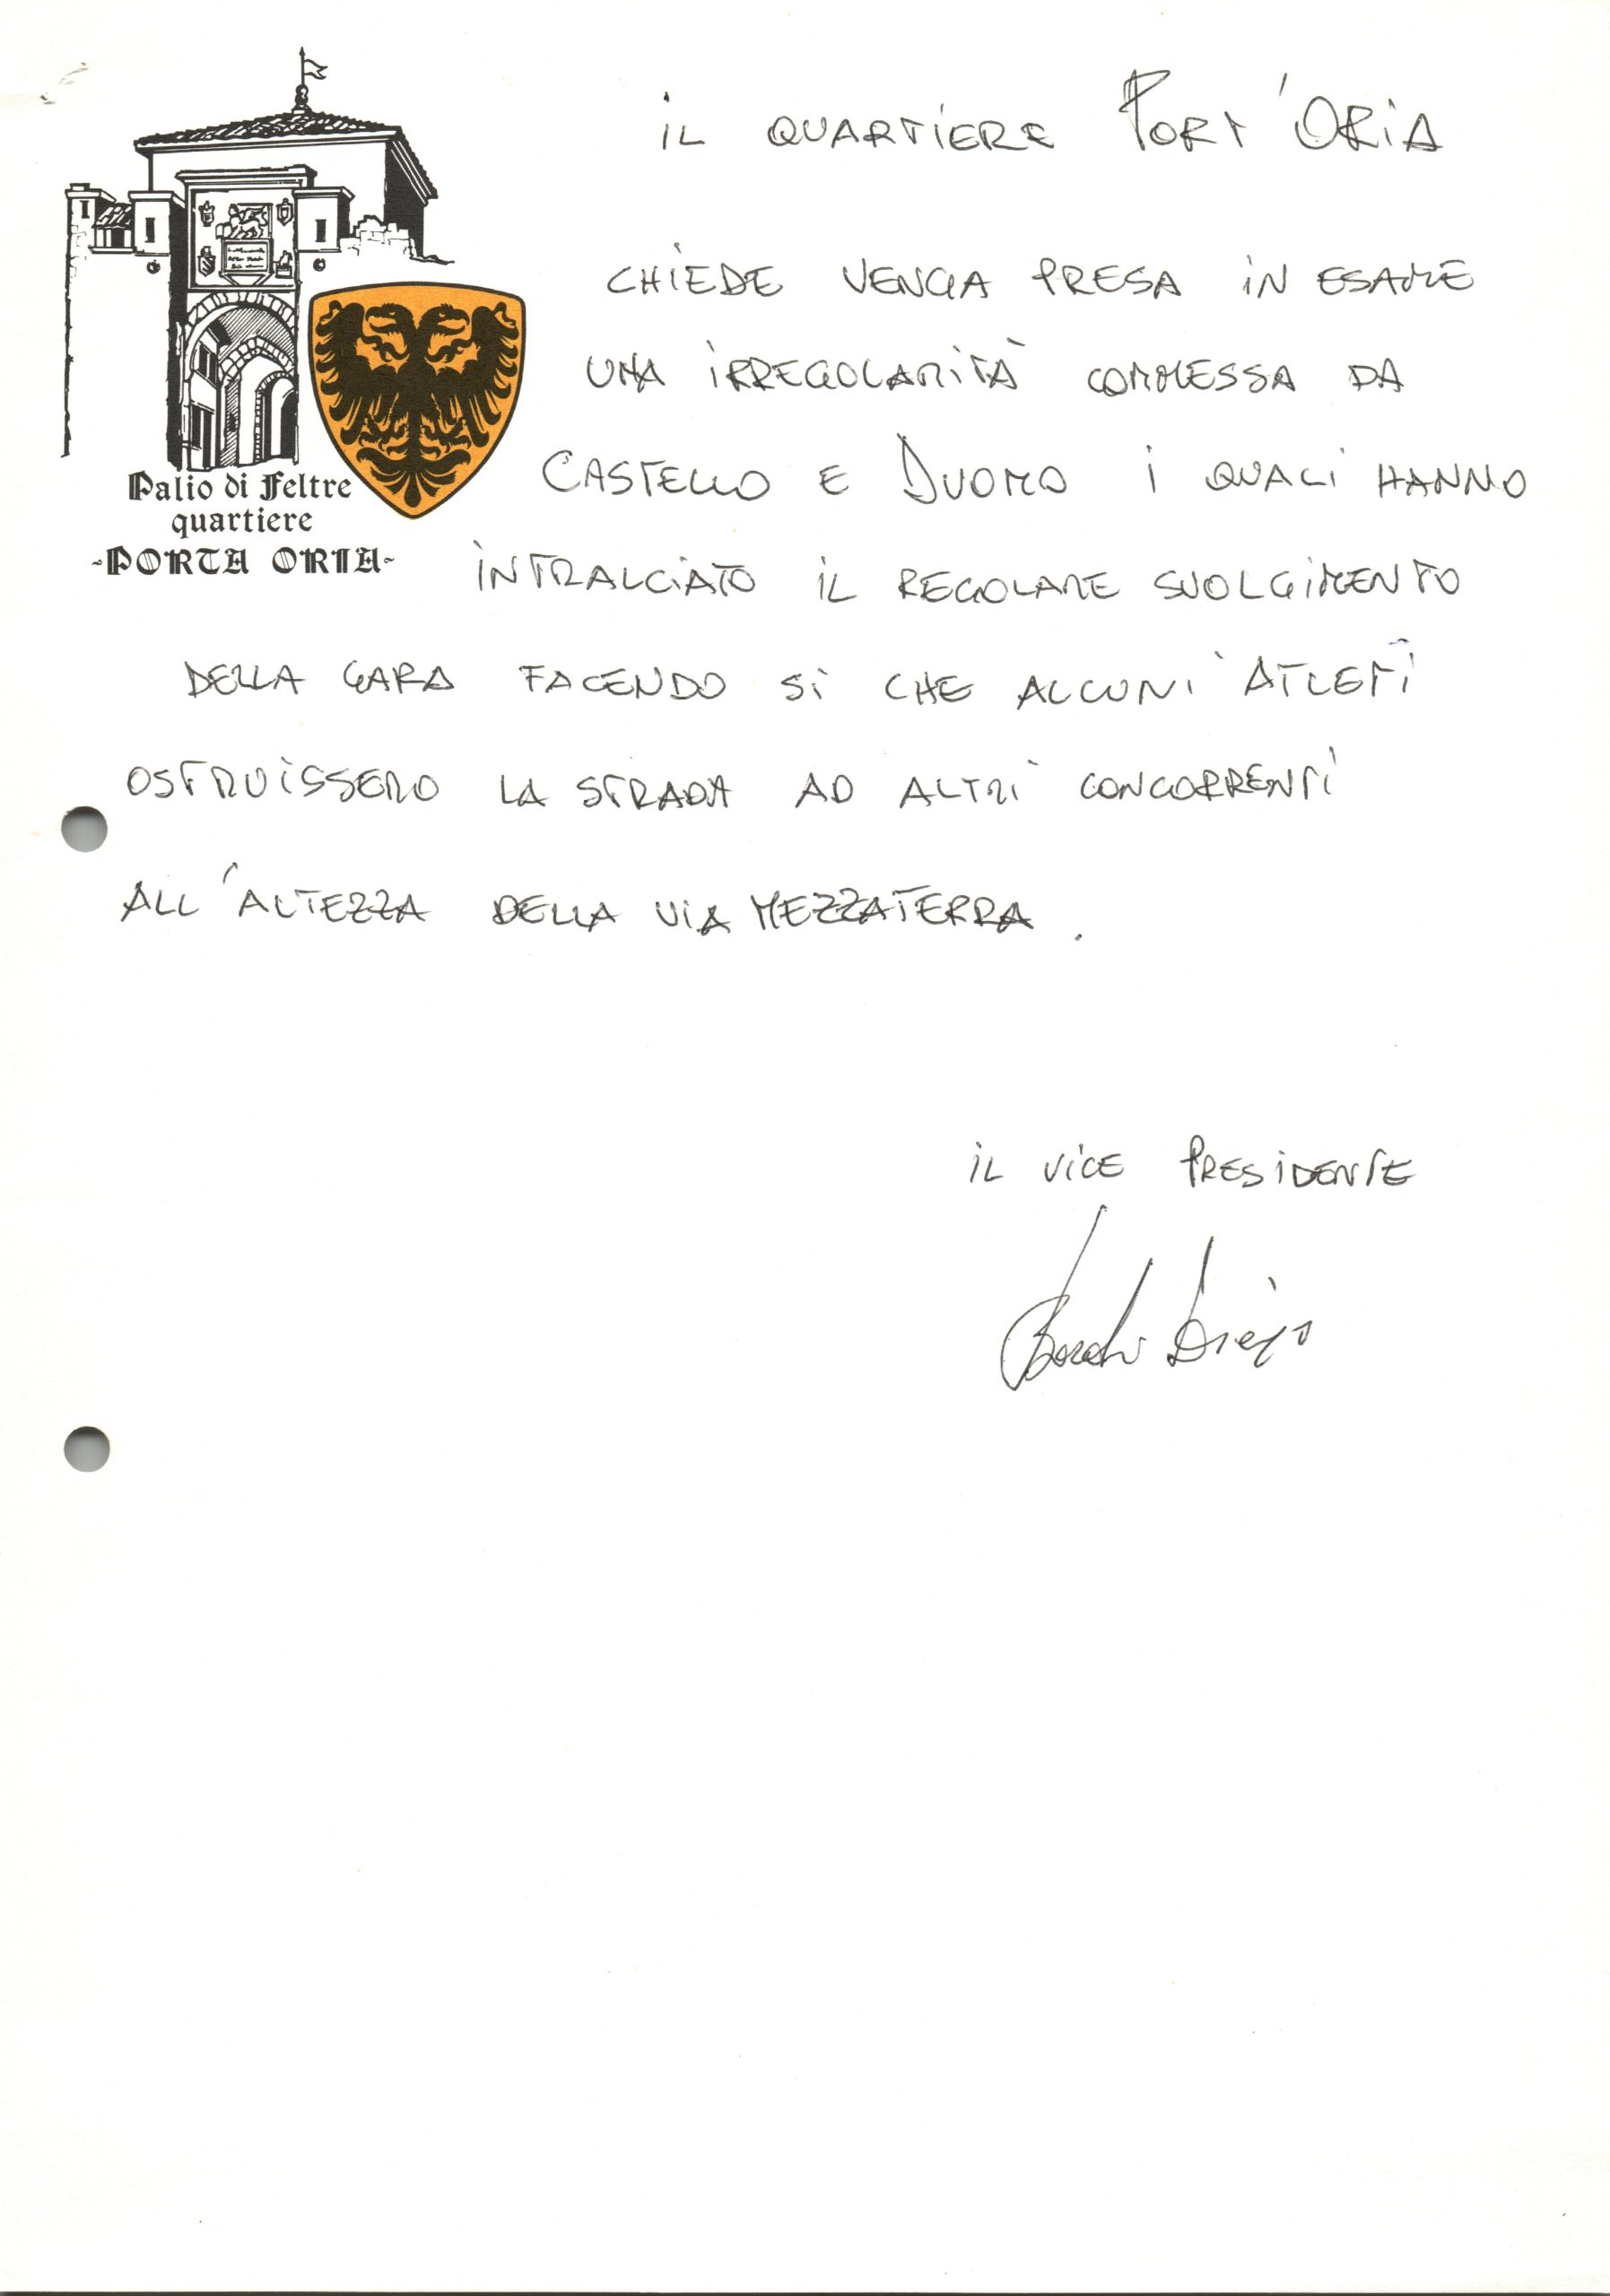 Palio di Feltre
quartiere
-PORTA ORIA-
IL QUARTIERE PORT'ORIA
CHIEDE VENGA PRESA IN ESAME
UNA IRREGOLARITÀ COMMESSA DA
CASTELLO E DUOMO I QUALI HANNO
INTRALCIATO IL REGOLARE SVOLGIMENTO
DELLA GARA FACENDO SI CHE ALCUNI ATLETI
OSTRUISSERO LA STRADA AD ALTRI CONCORRENTI
ALL'ALTEZZA DELLA VIA MEZZATERRA.
IL VICE PRESIDENTE
Diego